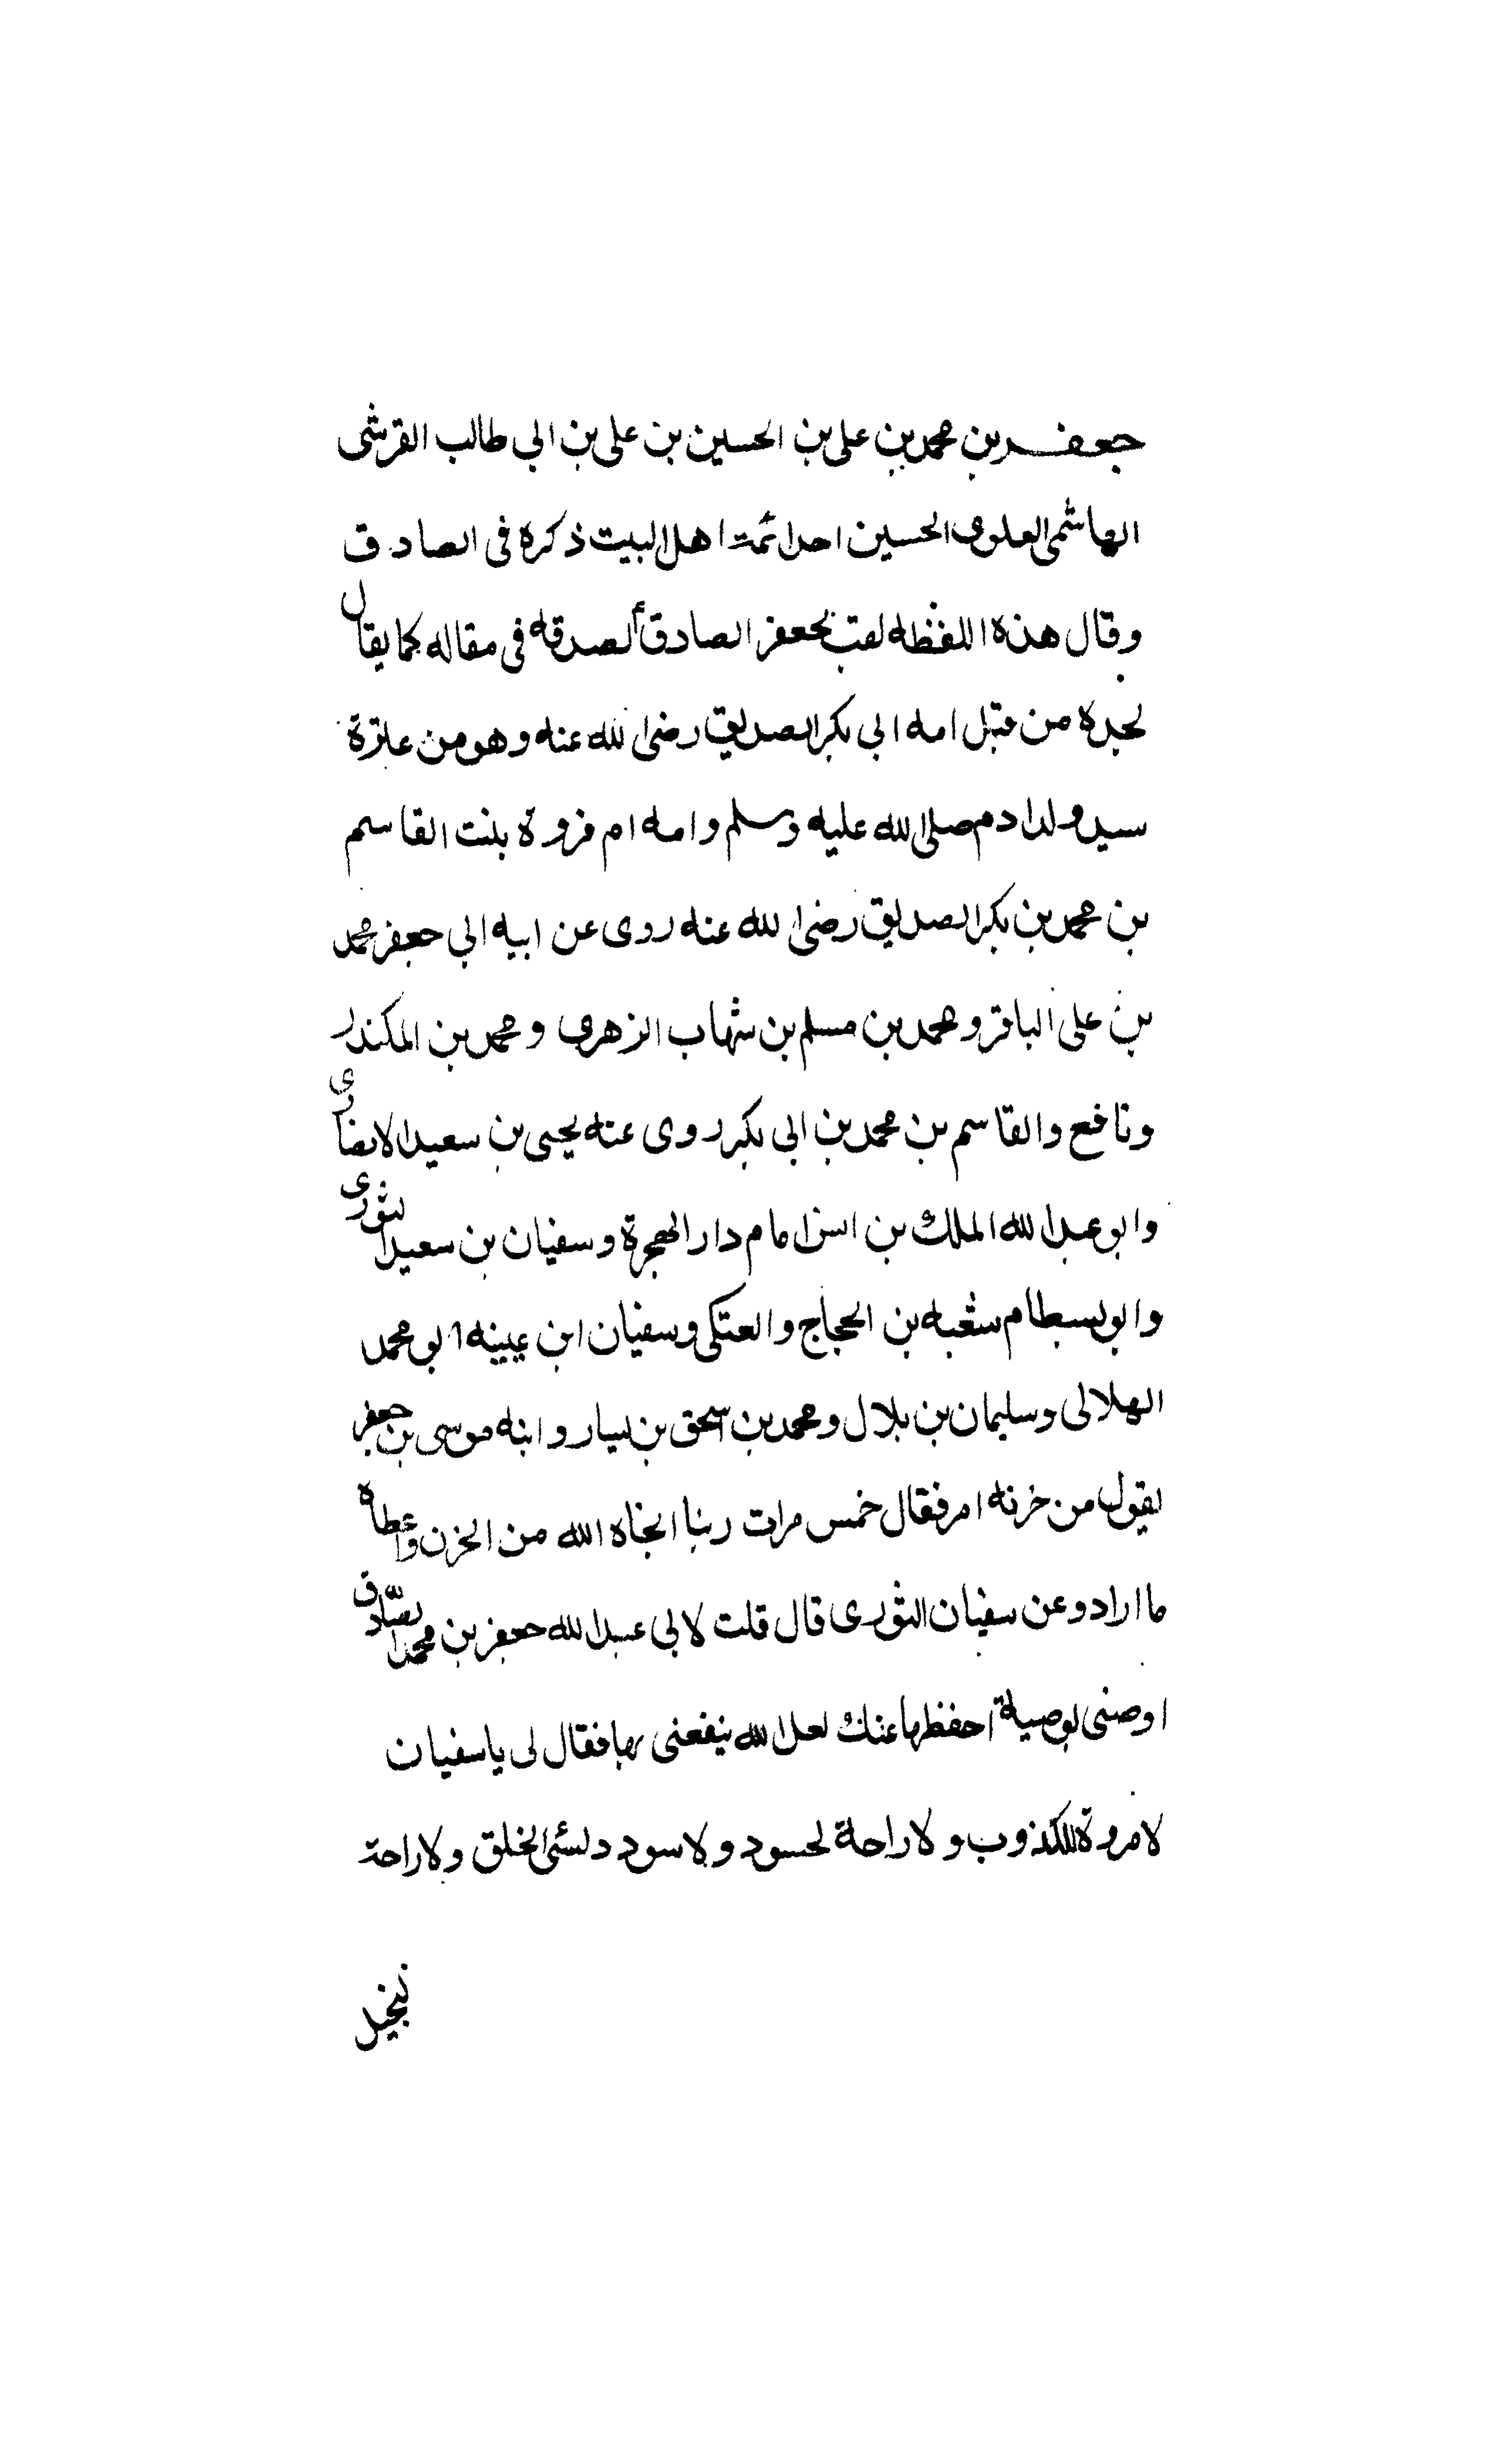 جعفر بن محمد بن على بن الحسين بن على بن ابي طالب القرشى
الهاشمى العلوى الحسين احد ائمة اهل البيت ذكره فى الصادق
وقال هذه اللفظه لقب لجعفر الصادق ألصدقه فى مقاله كما يقال
لجده من قبل امه ابي بكر الصديق رضى الله عنه وهو من عترة
سيد ولد ادم صلى الله عليه وسلم وامه ام فروة بنت القاسم
بن محمد بن بكر الصديق رضى الله عنه روى عن ابيه ابي جعفر محمد
بن على الباقر ومحمد بن مسلم بن شهاب الزهرى ومحمد بن المكندر
ونافع والقاسم بن محمد بن ابى بكر روى عنه يحيى بن سعيد الانصارى
وابو عبد الله الملك بن اسن امام دار الهجرة وسفيان بن سعيد الثورى
وابو بسطام شعبه بن الحجاج والعتكى وسفيان ابن عيينه ابو محمد
الهلالى وسليمان بن بلال ومحمد بن اسحق بن يسار وابنه موسى بن جعفر
يقول من خزنه امر فقال خمس مرات ربنا انجاه الله من الخزن واعطاه
ما اراد وعن سفيان الثورى قال قلت لابى عبد الله جعفر بن محمد الصّادق
اوصنى بوصية احفظها عنك لعل الله ينفعنى بها فقال لى يا سفيان
لا مروة للكذوب ولا راحلة لحسود ولا سودد لسئ الخلق ولا راحة
لبخيل